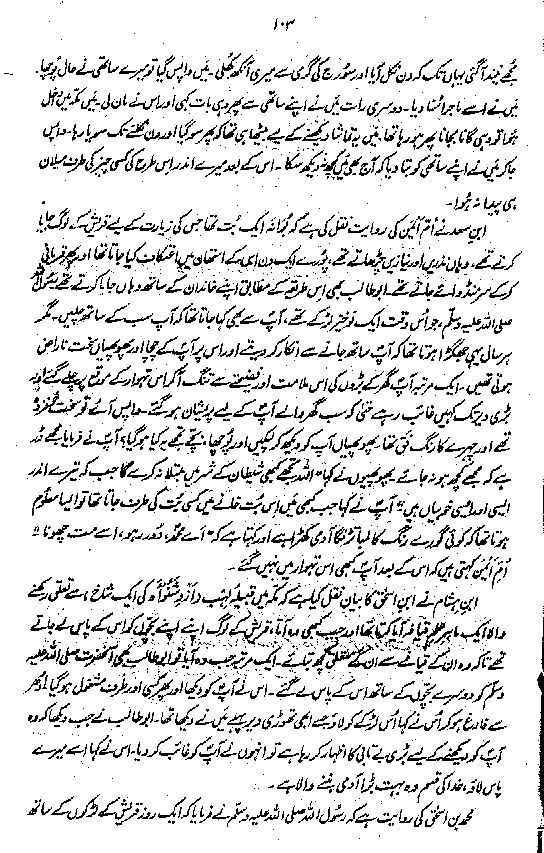 ۱۰۳
مجھے نیند آگئی یہاں تک کہ دن نکل آیا اور سورج کی گرمی سے میری آنکھ کھلی۔ میں واپس گیا تو میرے ساتھی نے حال پوچھا۔
میں نے اسے ماجرا سنا دیا۔ دوسری رات میں نے اپنے ساتھی سے پھر وہی بات کہی اور اس نے مان لی۔ میں مکہ میں داخل
ہوا تو وہی گانا بجانا پھر ہو رہا تھا، میں یہ تماشا دیکھنے کے لیے بیٹھا ہی تھا کہ پھر سو گیا اور دن نکلنے تک سویا رہا۔ واپس
جا کر میں نے اپنے ساتھی کو بتا دیا کہ آج بھی میں کچھ نہ دیکھ سکا۔ اس کے بعد میرے اندر اس طرح کی کسی چیز کی طرف میلان
ہی پیدا نہ ہوا۔
ابن سعد نے ام ایمن کی روایت نقل کی ہے کہ بُوَانہ ایک بت تھا جس کی زیارت کے لیے قریش کے لوگ جایا
کرتے تھے، وہاں نذریں اور نیازیں چڑھاتے تھے، پورے ایک دن اس کے استھان میں اعتکاف کیا جاتا تھا اور پھر قربانی
کر کے سر منڈوائے جاتے تھے۔ ابوطالب بھی اس طریقے کے مطابق اپنے خاندان کے ساتھ وہاں جایا کرتے تھے رسول اللہ
صلی اللہ علیہ وسلم، جو اُس وقت ایک نوخیز لڑکے تھے، آپؐ سے بھی کہا جاتا تھا کہ آپ سب کے ساتھ چلیں۔ مگر
ہر سال یہی جھگڑا ہوتا تھا کہ آپؐ ساتھ جانے سے انکار کر دیتے اور اس پر آپ کے چچا اور پھوپھیاں سخت ناراض
ہوتی تھیں۔ ایک مرتبہ آپؐ گھر کے بڑوں کی اس ملامت اور غصے سے تنگ آ کر اس تہوار کے موقع پر چلے گئے اور
بڑی دیر تک کہیں غائب رہے حتیٰ کہ سب گھر والے آپؐ کے لیے پریشان ہو گئے۔ واپس آئے تو سخت خوفزدہ
تھے اور چہرے کا رنگ فق تھا۔ پھوپھیاں آپ کو دیکھ کر لپکیں اور پوچھا، بچے تجھے یہ کیا ہو گیا؟ آپؐ نے فرمایا مجھے ڈر
ہے کہ مجھے کچھ ہو نہ جائے۔ پھوپھیوں نے کہا "اللہ تجھے کبھی شیطان کے شر میں مبتلا نہ کرے گا جب کہ تیرے اندر
ایسی اور ایسی خوبیاں ہیں"۔ آپؐ نے کہا جب کبھی میں اس بت خانے میں کسی بُت کی طرف جاتا تھا تو ایسا معلوم
ہوتا تھا کہ کوئی گورے رنگ کا لمبا تڑنگا آدمی کھڑا ہے اور کہتا ہے کہ "اے محمدؐ، دور رہو، اسے مت چھونا"
ام ایمن کہتی ہیں کہ اس کے بعد آپؐ کبھی اس تہوار میں نہیں گئے۔
ابن ہشام نے ابن اسحٰق کا بیان نقل کیا ہے کہ مکہ میں قبیلۂ لہب (ازد شنوءہ کی ایک شاخ) سے تعلق رکھنے
والا ایک ماہر علم قیافہ آیا کرتا تھا اور جب کبھی وہ آتا، قریش کے لوگ اپنے اپنے بچوں کو اس کے پاس لے جاتے
تھے تاکہ وہ ان کے قیافے سے ان کے متعلق کچھ بتائے۔ ایک مرتبہ جب وہ آیا تو ابوطالب بھی آنحضرت صلی اللہ علیہ
وسلم کو دوسرے بچوں کے ساتھ اس کے پاس لے گئے۔ اس نے آپؐ کو دیکھا اور پھر کسی اور طرف مشغول ہو گیا۔ اُدھر
سے فارغ ہو کر اُس نے کہا اُس لڑکے کو لاؤ جسے ابھی تھوڑی دیر پہلے میں نے دیکھا تھا۔ ابوطالب نے جب دیکھا کہ وہ
آپؐ کو دیکھنے کے لیے بڑی بے تابی کا اظہار کر رہا ہے تو انہوں نے آپؐ کو غائب کر دیا۔ اس نے کہا اسے میرے
پاس لاؤ، خدا کی قسم وہ بہت بڑا آدمی بننے والا ہے۔
محمد بن اسحٰق کی روایت ہے کہ رسول اللہ صلی اللہ علیہ وسلم نے فرمایا کہ ایک روز قریش کے لڑکوں کے ساتھ